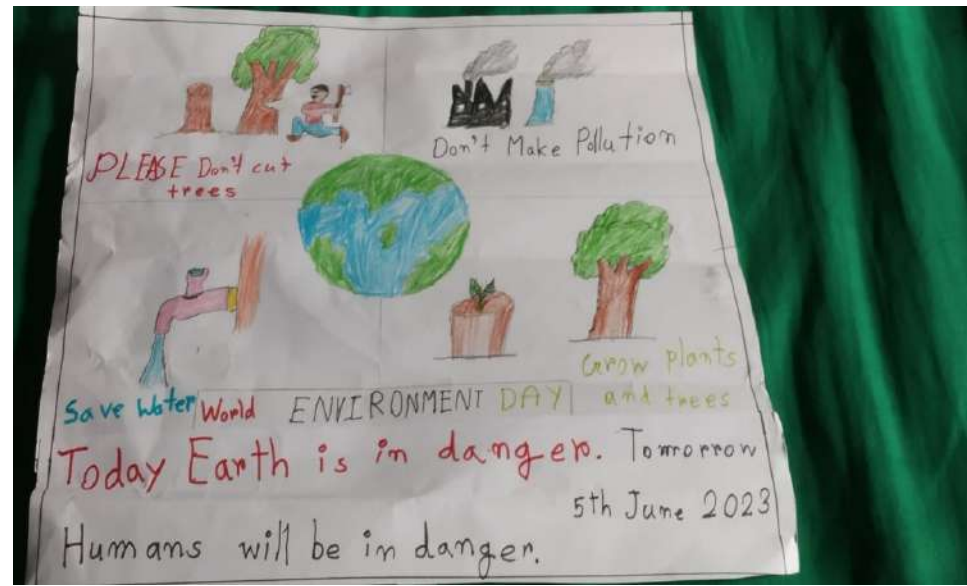 PLEASE Don't cut
trees
Don't Make Pollution
Save Water
Grow plants
and trees
World ENVIRONMENT DAY
Today Earth is in danger. Tomorrow
5th June 2023
Humans will be in danger.